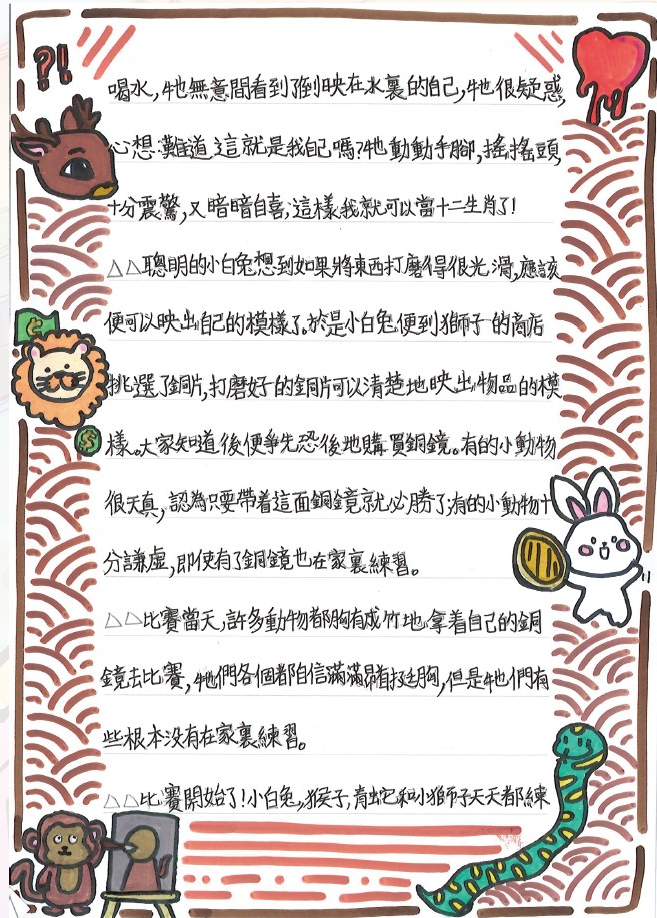 ?!
喝水,牠無意間看到了倒映在水裏的自己,牠很疑惑,
心想:難道這就是我自己嗎?牠動動手腳,搖搖頭
十分震驚,又暗暗自喜,這樣我就可以當十二生肖了!
△△聰明的小白兔想到如果將東西打磨得很光滑,應該
便可以映出自己的模樣了。於是小白兔便到獅子的商店
挑選了銅片,打磨好的銅片可以清楚地映出物品的模
樣。大家知道後便爭先恐後地購買銅鏡。有的小動物
很天真,認為只要帶着這面銅鏡就必勝了;有的小動物十
分謙虛,即使有了銅鏡也在家裏練習。
△△比賽當天,許多動物都胸有成竹地拿着自己的銅
鏡去比賽,牠們各個都自信滿滿昂首挺胸,但是牠們有
些根本没有在家裏練習。
△△比賽開始了!小白兔,猴子,青蛇和小獅子天天都練